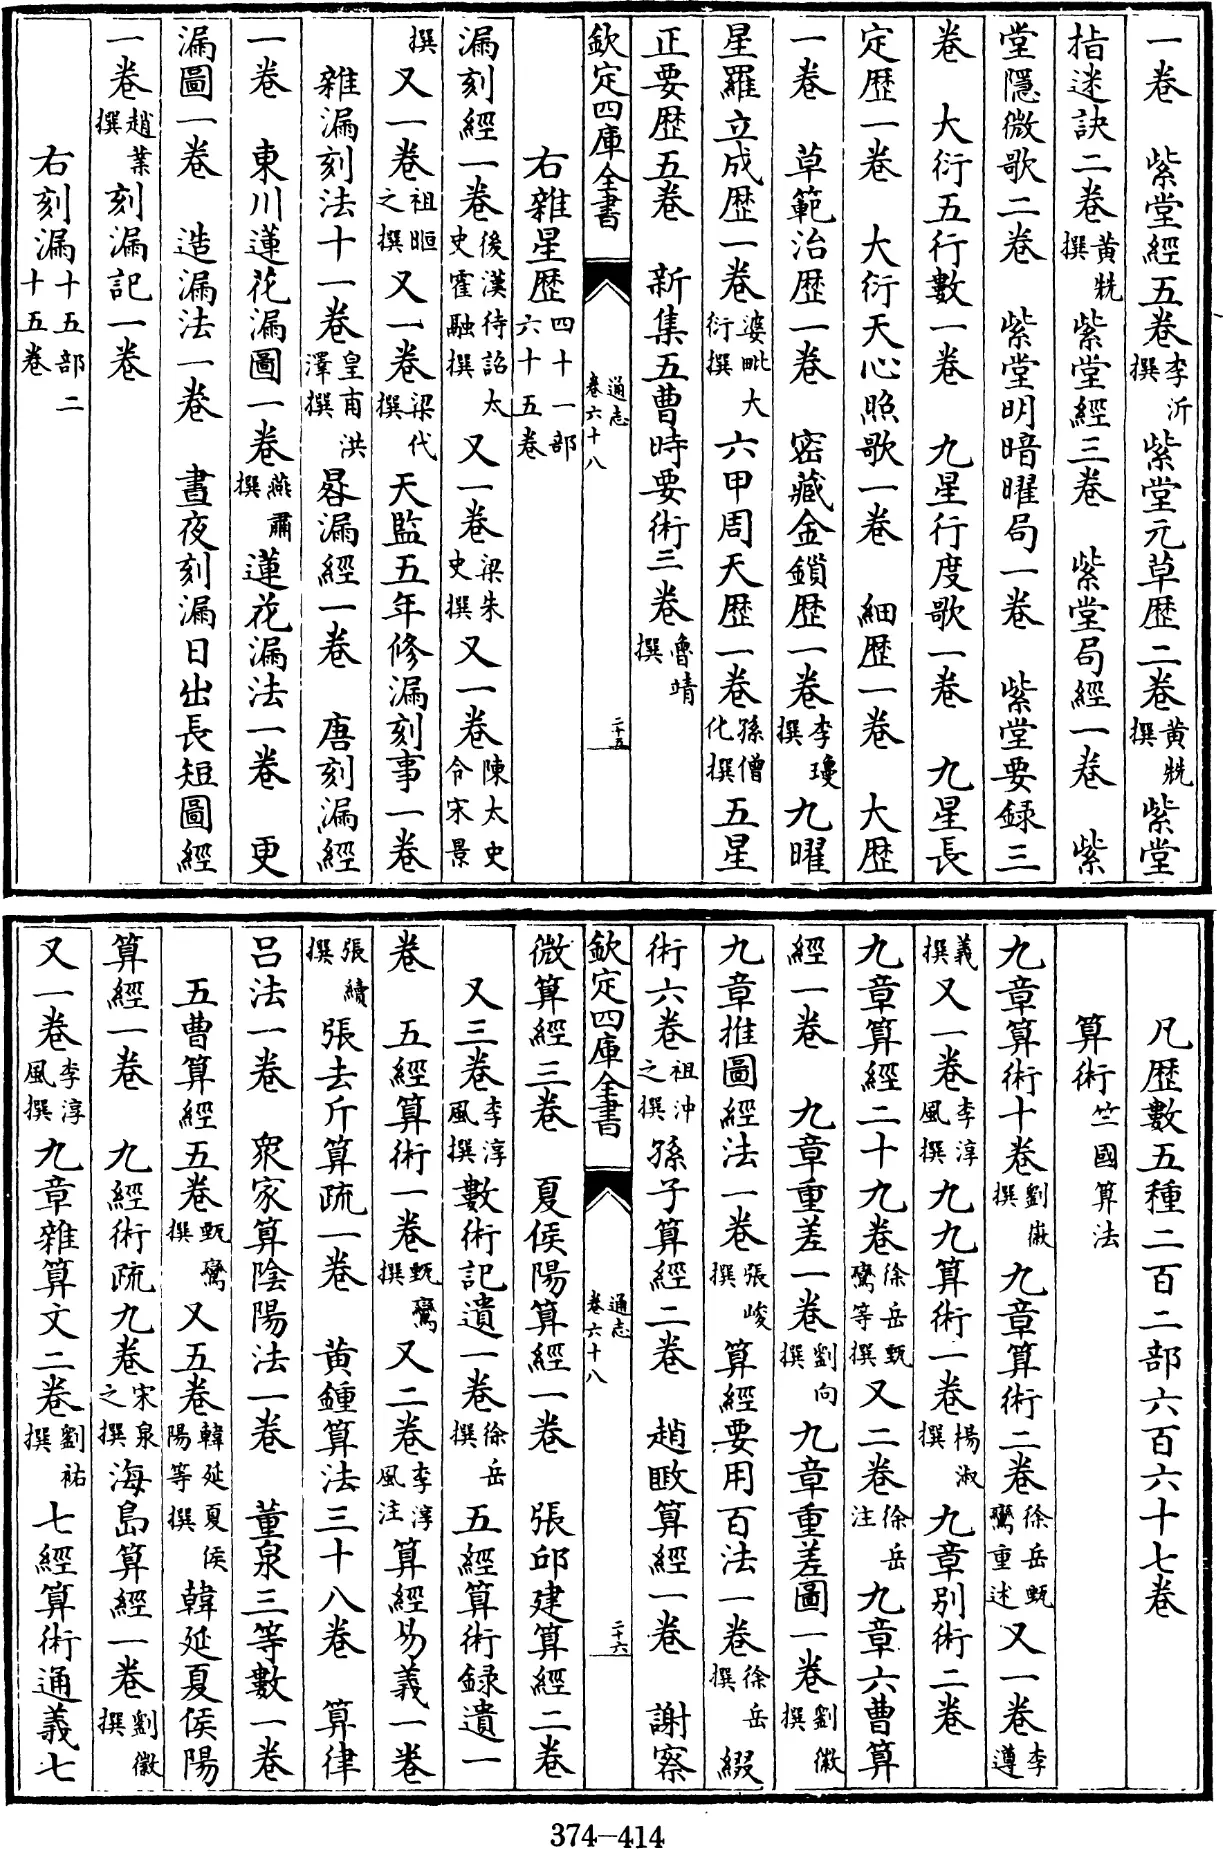 一卷　紫堂經五卷李沂撰紫堂元草歴二卷黄㲽撰紫堂
指迷訣二卷黄㲽撰紫堂經三卷　紫堂局經一卷　紫
堂隱微歌二卷　紫堂明暗曜局一卷　紫堂要録三
卷　大衍五行數一卷　九星行度歌一卷　九星長
定歴一卷　大衍天心照歌一卷　細歴一卷　大歴
一卷　草範治歴一卷　密藏金鎖歴一卷李瓊撰九曜
星羅立成歴一卷婆毗大衍撰六甲周天歴一卷孫僧化撰五星
正要歴五卷　新集五曹時要術三卷魯靖撰
欽定四庫全書　通志卷六十八　二十五
右雜星歴四十一部六十五卷
漏刻經一卷後漢待詔太史霍融撰又一卷梁朱史撰又一卷陳太史令宋景
撰又一卷祖暅之撰又一卷梁代撰天監五年修漏刻事一卷
雜漏刻法十一卷皇甫洪澤撰晷漏經一卷　唐刻漏經
一卷　東川蓮花漏圖一卷燕肅撰蓮花漏法一卷　更
漏圖一卷　造漏法一卷　晝夜刻漏日出長短圖經
一卷趙業撰刻漏記一卷
右刻漏十五部二十五卷
凡歴數五種二百二部六百六十七卷
算術竺國算法
九章算術十卷劉徽撰　九章算術二卷徐岳甄鸞重述又一卷李遵
義撰又一卷李淳風撰九九算術一卷楊淑撰九章别術二卷
九章算經二十九卷徐岳甄鸞等撰又二卷徐岳注九章六曹算
經一卷　九章重差一卷劉向撰九章重差圖一卷劉徽撰
九章推圖經法一卷張峻撰算經要用百法一卷徐岳撰綴
術六卷祖沖之撰孫子算經二卷　趙𢾺算經一卷　謝察
欽定四庫全書　通志卷六十八　二十六
微算經三卷　夏侯陽算經一卷　張邱建算經二卷
又三卷李淳風撰數術記遺一卷徐岳撰五經算術録遺一
卷　五經算術一卷甄鸞撰又二卷李淳風注算經易義一卷
張續撰張去斤算疏一卷　黄鍾算法三十八卷　算律
吕法一卷　衆家算陰陽法一卷　董泉三等數一卷
五曹算經五卷甄鸞撰又五卷韓延夏侯陽等撰韓延夏侯陽
算經一卷　九經術疏九卷宋泉之撰海島算經一卷劉徽撰
又一卷李淳風撰九章雜算文二卷劉祐撰七經算術通義七
374-414